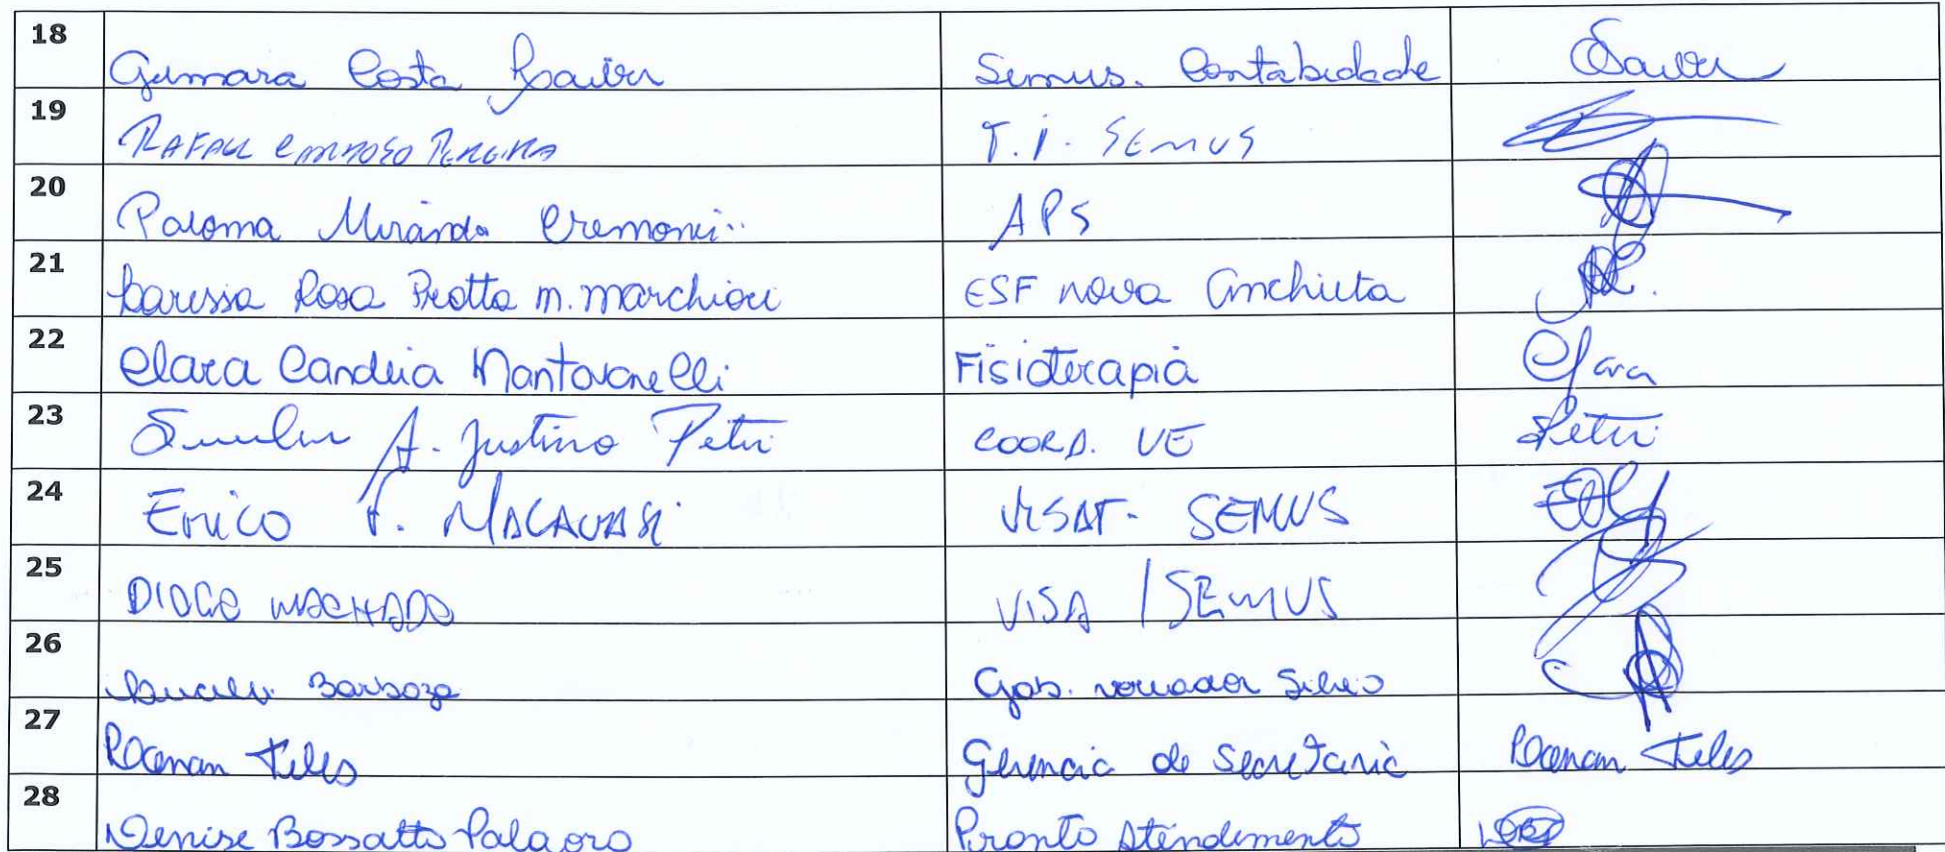 18 Gumara Costa Semus. Contabidade
19 RAFAEL CARDOSO PEREIRA T.I. SEMUS
20 Paloma Miranda Cremonini APS
21 Larissa Rosa Protta m. marchiori ESF nova Anchieta
22 Clara Candeia Mantovanelli Fisioterapia Clara
23 A. Justino Petri COORD. VE Petri
24 Erico F. VISAT - SEMUS
25 DIOGO MACHADO VISA / SEMUS
26 Barboza Gab. vereador Silvio
27 Renan Teles Gerencia de Secretaria Renan Teles
28 Denise Bossatto Palaoro Pronto Atendimento